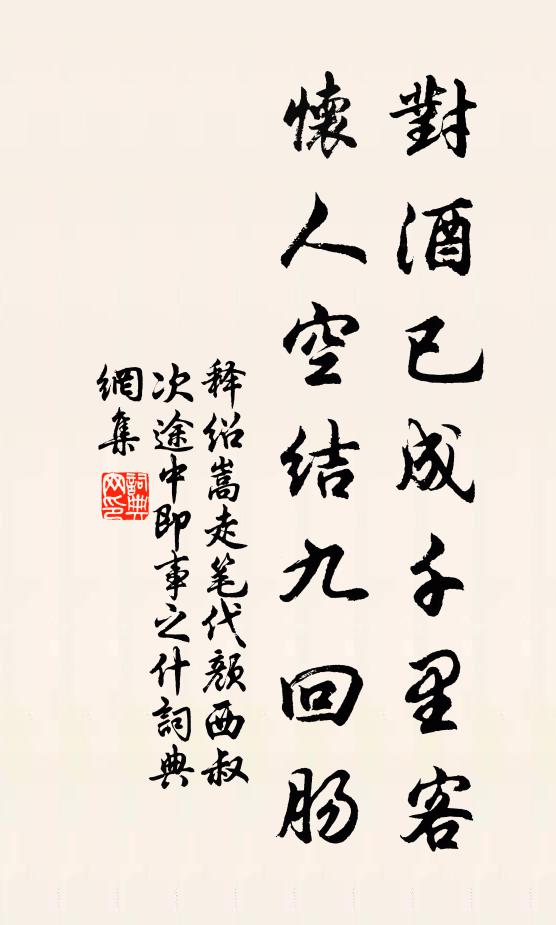 對酒已成千里客
懷人空结九回肠
释绍嵩走笔代颜西叔
次途中即事之什詞典
網集
詞典
网印